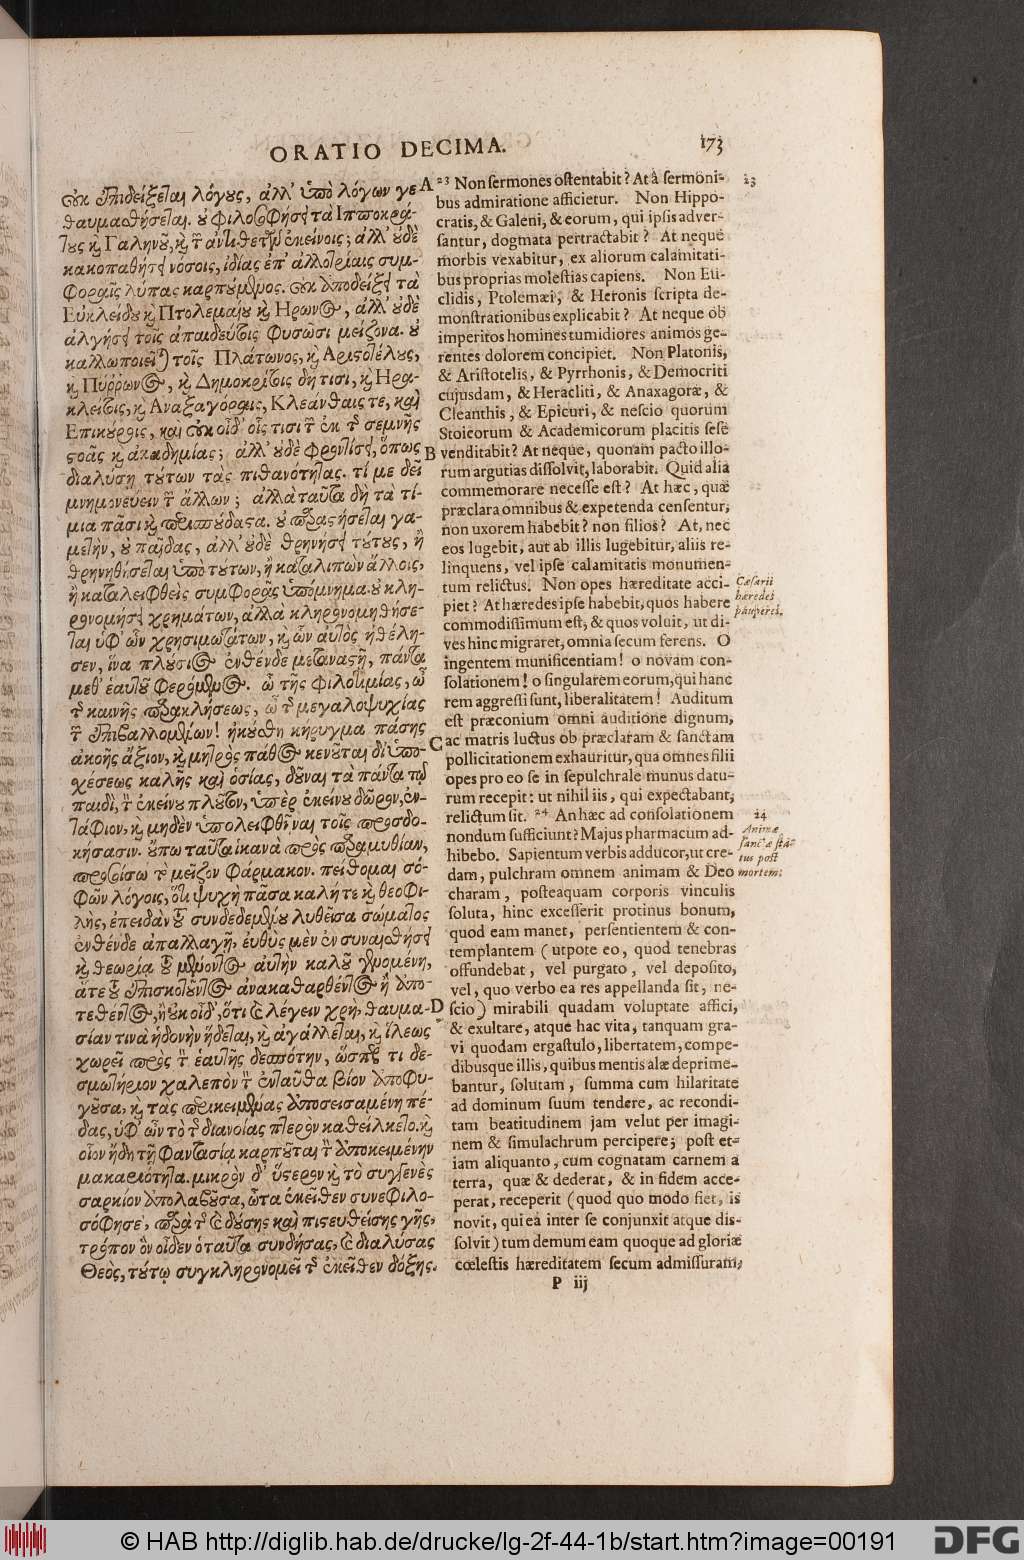 ORATIO DECIMA.
173
οὐκ ἐπιδείξεται λόγους, ἀλλ' ὑπὸ λόγων γε
θαυμασθήσεται. οὐ φιλοσοφήσει τὰ Ἱπποκρά-
τους καὶ Γαληνοῦ, καὶ τῶν ἀντιθέτων ἐκείνοις; ἀλλ' οὐδὲ
κακοπαθήσει νόσοις, ἰδίας ἐπ' ἀλλοτρίαις συμ-
φοραῖς λύπας καρπούμενος. οὐκ ἀποδείξει τὰ
Εὐκλείδου καὶ Πτολεμαίου καὶ Ἥρωνος, ἀλλ' οὐδὲ
ἀλγήσει τοῖς ἀπαιδεύτοις φυσῶσι μείζονα. οὐ
καλλωπιεῖται τοῖς Πλάτωνος, καὶ Ἀριστοτέλους,
καὶ Πύρρωνος, καὶ Δημοκρίτοις δή τισι, καὶ Ἡρα-
κλείτοις, καὶ Ἀναξαγόραις, Κλεάνθαις τε, καὶ
Ἐπικούροις, καὶ οὐκ οἶδ' οἷς τισι τῶν ἐκ τῆς σεμνῆς
στοᾶς καὶ ἀκαδημίας; ἀλλ' οὐδὲ φροντίσει, ὅπως
διαλύσῃ τούτων τὰς πιθανότητας. τί με δεῖ
μνημονεύειν τῶν ἄλλων; ἀλλὰ ταῦτα δὴ τὰ τί-
μια πᾶσι καὶ περισπούδαστα. οὐ παραστήσεται γα-
μετὴν, οὐ παῖδας, ἀλλ' οὐδὲ θρηνήσει τούτους, ἢ
θρηνηθήσεται ὑπὸ τούτων, ἢ καταλιπὼν ἄλλοις,
ἢ καταλειφθεὶς συμφορᾶς ὑπόμνημα. οὐ κλη-
ρονομήσει χρημάτων, ἀλλὰ κληρονομηθήσε-
ται ὑφ' ὧν χρησιμωτάτων, καὶ ὧν αὐτὸς ἠθέλη-
σεν, ἵνα πλούσιος ἐνθένδε μεταναστῇ, πάντα
μεθ' ἑαυτοῦ φερόμενος. ὢ τῆς φιλοτιμίας, ὢ
τῆς καινῆς παρακλήσεως, ὢ τῆς μεγαλοψυχίας
τῶν ἐπιβαλλομένων! ἠκούσθη κήρυγμα πάσης
ἀκοῆς ἄξιον, καὶ μητρὸς πάθος κενοῦται δι' ὑπο-
σχέσεως καλῆς καὶ ὁσίας, δοῦναι τὰ πάντα τῷ
παιδὶ, τὸν ἐκείνου πλοῦτον, ὑπὲρ ἐκείνου δῶρον, ἐν-
τάφιον, καὶ μηδὲν ὑπολειφθῆναι τοῖς προσδο-
κήσασιν. οὔπω ταῦτα ἱκανὰ πρὸς παραμυθίαν,
προσοίσω τὸ μεῖζον φάρμακον. πείθομαι σο-
φῶν λόγοις, ὅτι ψυχὴ πᾶσα καλή τε καὶ θεοφι-
λὴς, ἐπειδὰν τοῦ συνδεδεμένου λυθεῖσα σώματος
ἐνθένδε ἀπαλλαγῇ, εὐθὺς μὲν ἐν συναισθήσει
καὶ θεωρίᾳ τοῦ μένοντος αὐτὴν καλοῦ γενομένη,
ἅτε τοῦ ἐπισκοτοῦντος ἀνακαθαρθέντος ἢ ἀπο-
τεθέντος, ἢ οὐκ οἶδ', ὅ,τι καὶ λέγειν χρὴ, θαυμα-
σίαν τινὰ ἡδονὴν ἥδεται, καὶ ἀγάλλεται, καὶ ἵλεως
χωρεῖ πρὸς τὸν ἑαυτῆς δεσπότην, ὥσπερ τι δε-
σμωτήριον χαλεπὸν τὸν ἐνταῦθα βίον ἀποφυ-
γοῦσα, καὶ τὰς περικειμένας ἀποσεισαμένη πέ-
δας, ὑφ' ὧν τὸ τῆς διανοίας πτερὸν καθείλκετο, καὶ
οἷον ἤδη τῇ φαντασίᾳ καρποῦται τὴν ἀποκειμένην
μακαριότητα. μικρὸν δ' ὕστερον καὶ τὸ συγγενὲς
σαρκίον ἀπολαβοῦσα, ᾧ τὰ ἐκεῖθεν συνεφιλο-
σόφησε, παρὰ τῆς καὶ δούσης καὶ πιστευθείσης γῆς,
τρόπον ὃν οἶδεν ὁ ταῦτα συνδήσας, καὶ διαλύσας
Θεὸς, τούτῳ συγκληρονομεῖ τῆς ἐκεῖθεν δόξης.
A
B
C
D
23 Non sermones ostentabit? At à sermoni-
bus admiratione afficietur. Non Hippo-
cratis, & Galeni, & eorum, qui ipsis adver-
santur, dogmata pertractabit? At neque
morbis vexabitur, ex aliorum calamitati-
bus proprias molestias capiens. Non Eu-
clidis, Ptolemæi, & Heronis scripta de-
monstrationibus explicabit? At neque ob
imperitos homines tumidiores animos ge-
rentes dolorem concipiet. Non Platonis,
& Aristotelis, & Pyrrhonis, & Democriti
cujusdam, & Heracliti, & Anaxagoræ, &
Cleanthis, & Epicuri, & nescio quorum
Stoicorum & Academicorum placitis sese
venditabit? At neque, quonam pacto illo-
rum argutias dissolvit, laborabit. Quid alia
commemorare necesse est? At hæc, quæ
præclara omnibus & expetenda censentur,
non uxorem habebit? non filios? At, nec
eos lugebit, aut ab illis lugebitur, aliis re-
linquens, vel ipse calamitatis monumen-
tum relictus. Non opes hæreditate acci-
piet? At hæredes ipse habebit, quos habere
commodissimum est, & quos voluit, ut di-
ves hinc migraret, omnia secum ferens. O
ingentem munificentiam! o novam con-
solationem! o singularem eorum, qui hanc
rem aggressi sunt, liberalitatem! Auditum
est præconium omni auditione dignum,
ac matris luctus ob præclaram & sanctam
pollicitationem exhauritur, qua omnes filii
opes pro eo se in sepulchrale munus datu-
rum recepit: ut nihil iis, qui expectabant,
relictum sit. 24 An hæc ad consolationem
nondum sufficiunt? Majus pharmacum ad-
hibebo. Sapientum verbis adducor, ut cre-
dam, pulchram omnem animam & Deo
charam, posteaquam corporis vinculis
soluta, hinc excesserit protinus bonum,
quod eam manet, persentientem & con-
templantem (utpote eo, quod tenebras
offundebat, vel purgato, vel deposito,
vel, quo verbo ea res appellanda sit, ne-
scio) mirabili quadam voluptate affici,
& exultare, atque hac vita, tanquam gra-
vi quodam ergastulo, libertatem, compe-
dibusque illis, quibus mentis alæ deprime-
bantur, solutam, summa cum hilaritate
ad dominum suum tendere, ac recondi-
tam beatitudinem jam velut per imagi-
nem & simulachrum percipere; post et-
iam aliquanto, cum cognatam carnem a
terra, quæ & dederat, & in fidem acce-
perat, receperit (quod quo modo fiet, is
novit, qui ea inter se conjunxit atque dis-
solvit) tum demum eam quoque ad gloriæ
cœlestis hæreditatem secum admissuram,
P iij
23
Cæsarii
hæredes
pauperes.
24
Animæ
sanctæ sta-
tus post
mortem.
© HAB http://diglib.hab.de/drucke/lg-2f-44-1b/start.htm?image=00191
DFG